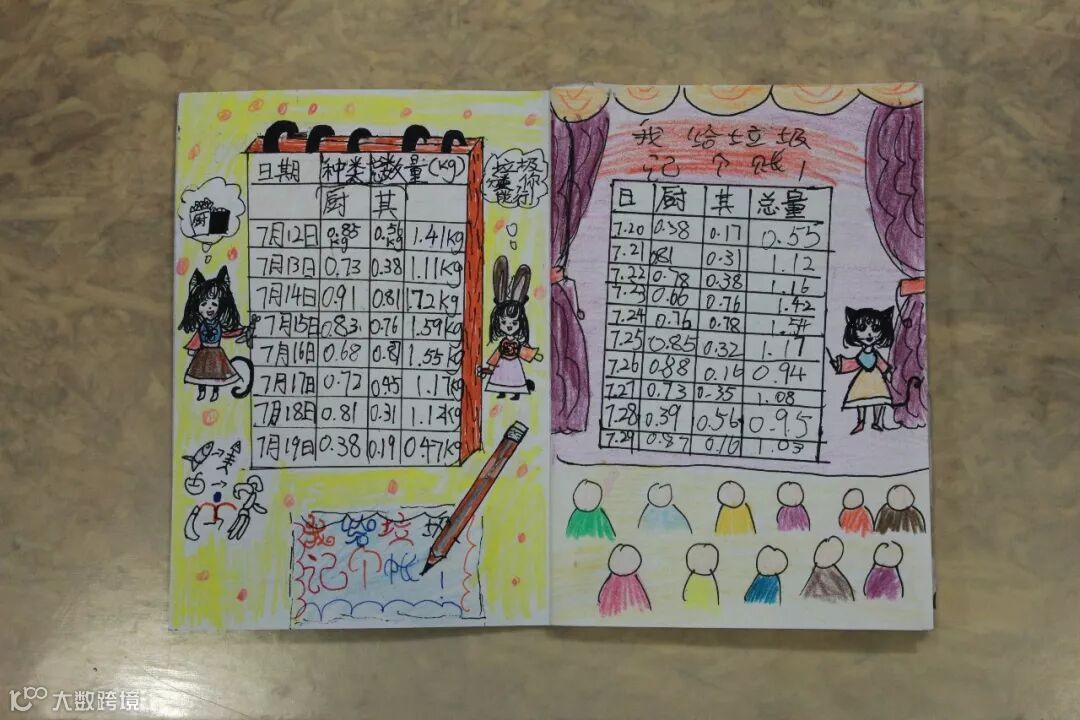 日期 种类 数量(kg)
厨 其
7月12日 0.85kg 0.56kg 1.41kg
7月13日 0.73 0.38 1.11kg
7月14日 0.91 0.81 1.72kg
7月15日 0.83 0.76 1.59kg
7月16日 0.68 1.55kg
7月17日 0.72 0.45 1.17kg
7月18日 0.81 0.31 1.12kg
7月19日 0.38 0.19 0.47kg
厨
垃圾
你
能行
我给垃圾
记个帐！
我给垃圾
记个账！
日 厨 其 总量
7.20 0.38 0.17 0.55
7.21 0.31 1.12
7.22 0.78 0.38 1.16
7.23 0.66 0.76 1.42
7.24 0.76 0.78 1.54
7.25 0.85 0.32 1.17
7.26 0.88 0.16 0.94
7.27 0.73 0.35 1.08
7.28 0.39 0.56 0.95
7.29 0.87 0.16 1.03
大数跨境